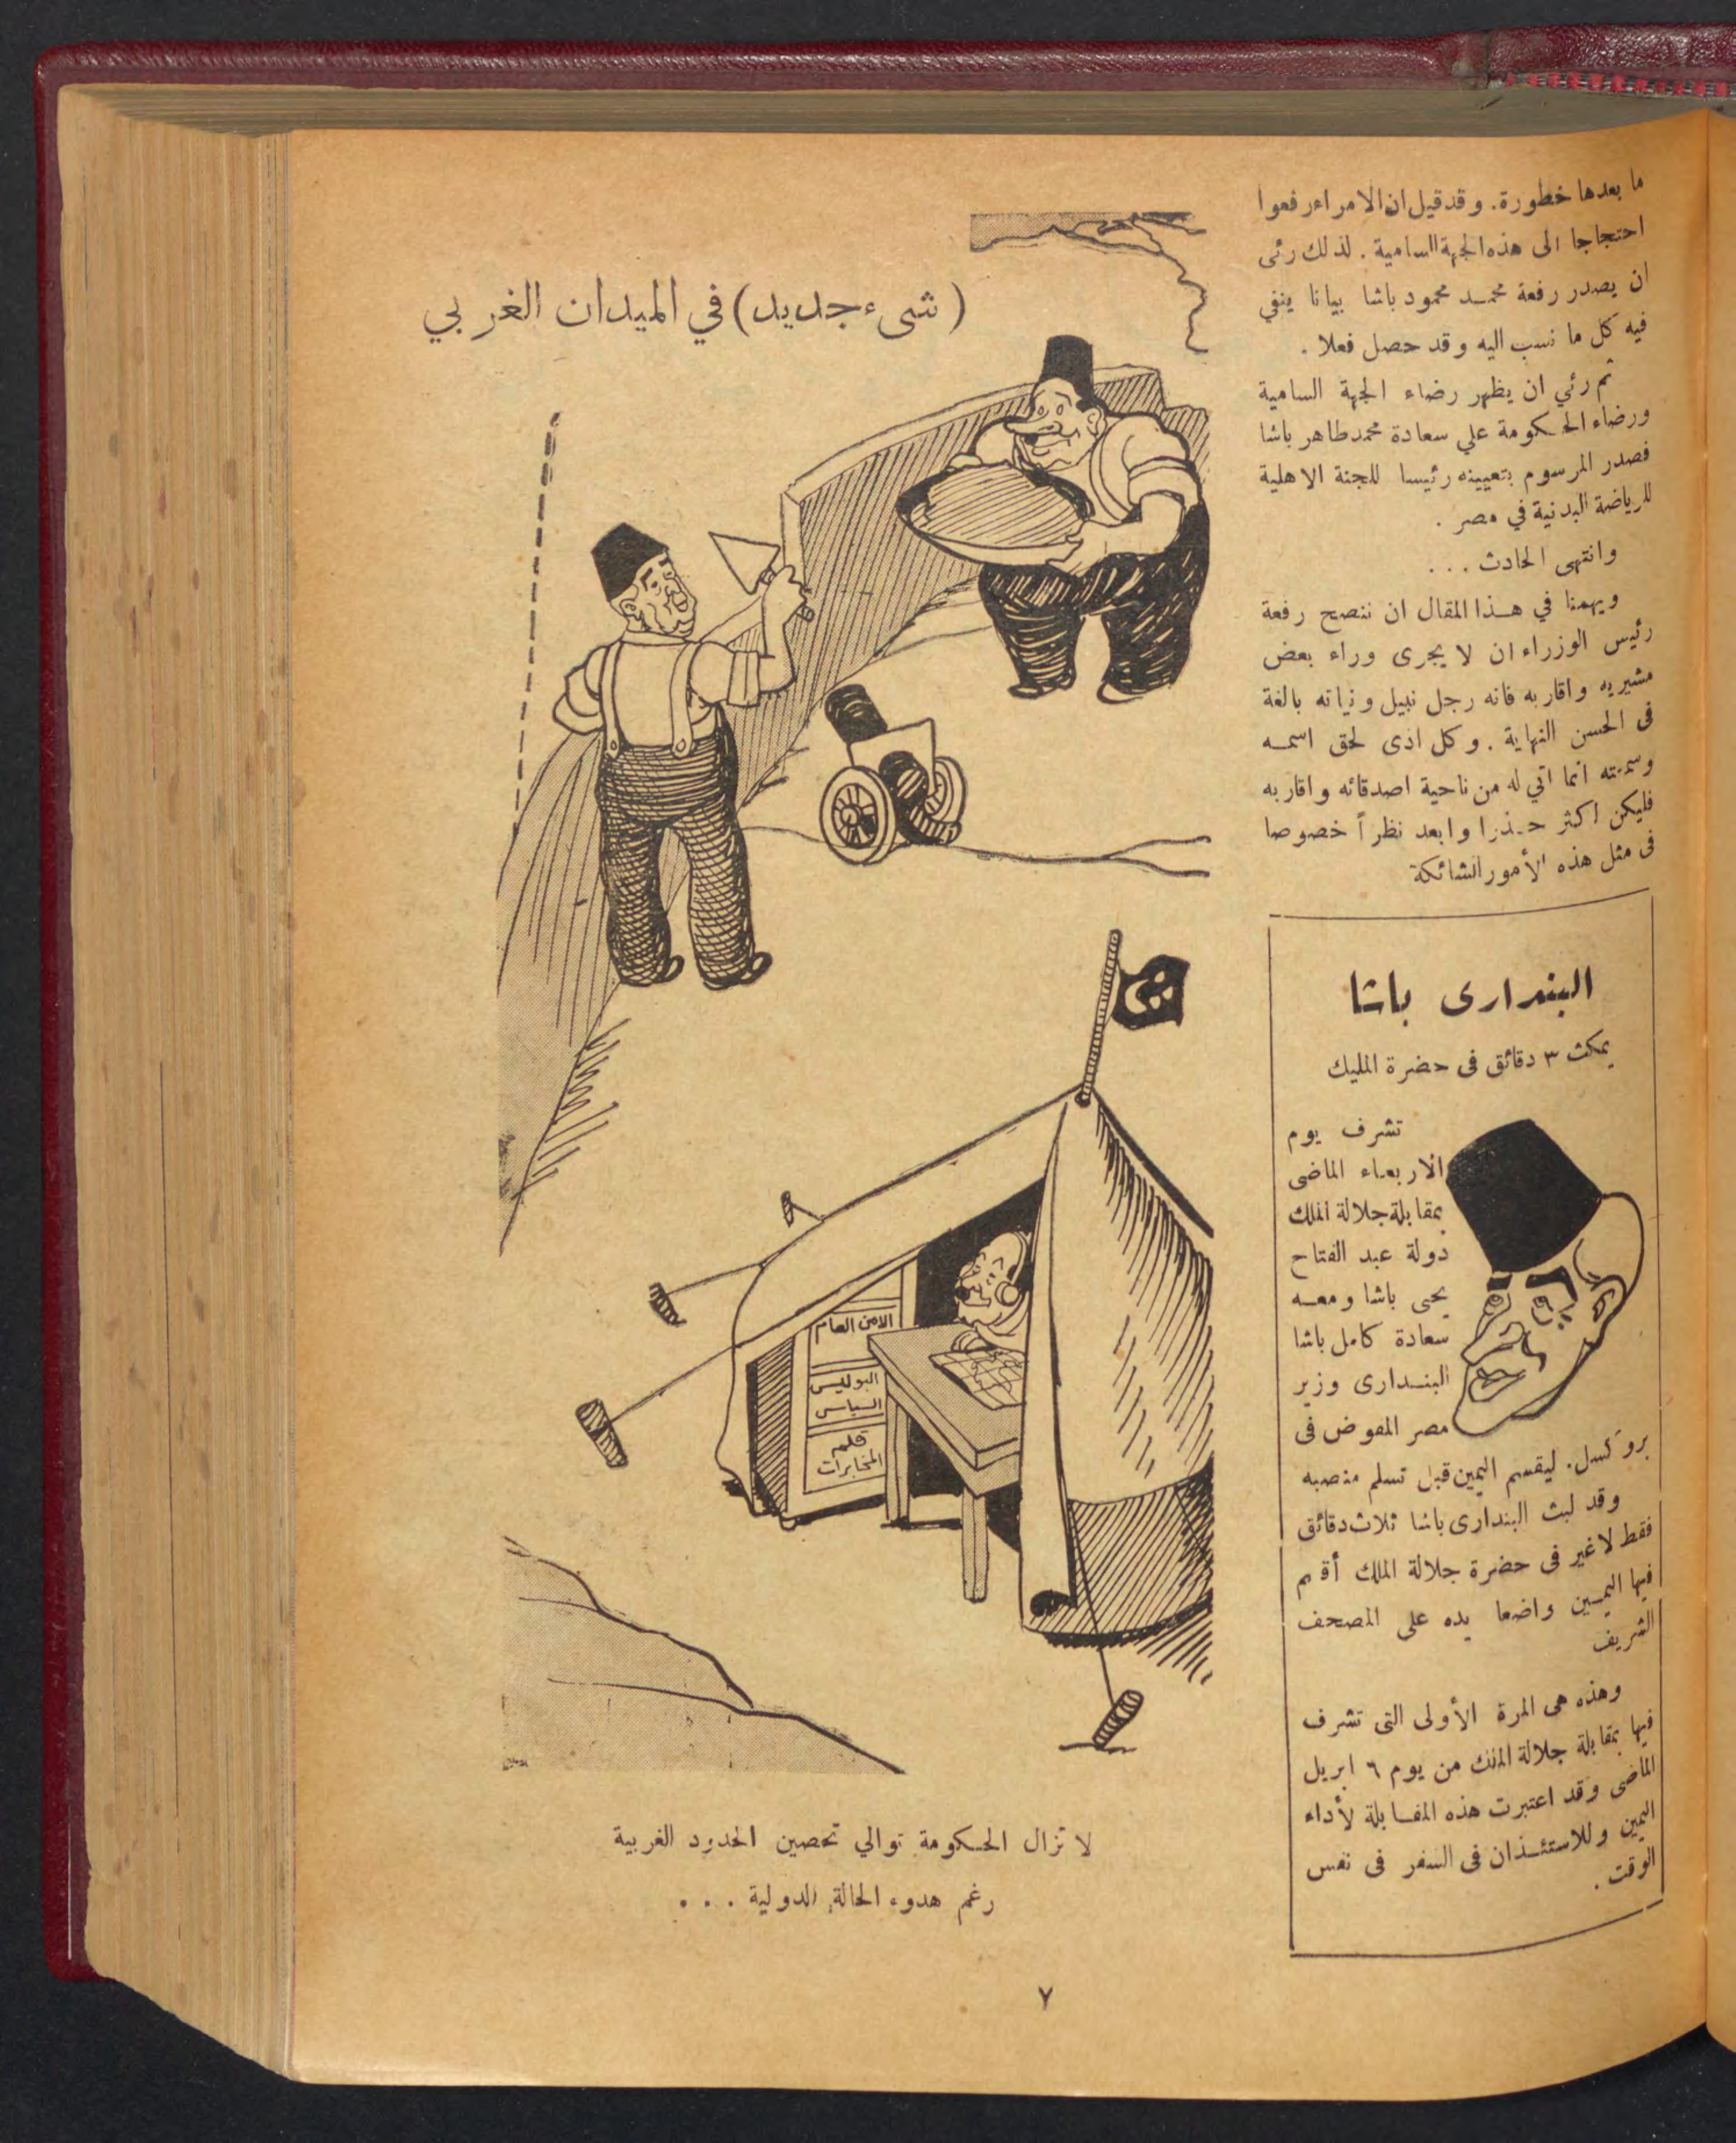 ما بعدها خطورة. وقد قيل ان الامراء رفعوا
احتجاجا الى هذه الجهة السامية. لذلك رئى
ان يصدر رفعة محمد محمود باشا بيانا ينفي
فيه كل ما نسب اليه وقد حصل فعلا.
ثم رئي ان يظهر رضاء الجهة السامية
ورضاء الحكومة علي سعادة محمد طاهر باشا
فصدر المرسوم بتعيينه رئيسا للجنة الاهلية
للرياضة البدنية في مصر.
وانتهى الحادث ...
ويهمنا في هذا المقال ان ننصح رفعة
رئيس الوزراء ان لا يجرى وراء بعض
مشيريه واقاربه فانه رجل نبيل ونياته بالغة
فى الحسن النهاية. وكل اذى لحق اسمه
وسمعته انما اتي له من ناحية اصدقائه واقاربه
فليكن اكثر حذرا وابعد نظراً خصوصا
فى مثل هذه الأمور الشائكة
البندارى باشا
يمكث ٣ دقائق فى حضرة المليك
تشرف يوم
الاربعاء الماضى
بمقابلة جلالة الملك
دولة عبد الفتاح
يحى باشا ومعه
سعادة كامل باشا
البندارى وزير
مصر المفوض فى
بروكسل. ليقسم اليمين قبل تسلم منصبه
وقد لبث البندارى باشا ثلاث دقائق
فقط لا غير فى حضرة جلالة الملك أقسم
فيها اليمين واضعا يده على المصحف
الشريف
وهذه هى المرة الأولى التى تشرف
فيها بمقابلة جلالة الملك من يوم ٦ ابريل
الماضى وقد اعتبرت هذه المقابلة لأداء
اليمين وللاستئذان فى السفر فى نفس
الوقت.
(شىء جديد) في الميدان الغربي
الامن العام
البوليس
السياسى
قلم
المخابرات
لا تزال الحكومة توالي تحصين الحدود الغربية
رغم هدوء الحالة الدولية ...
٧